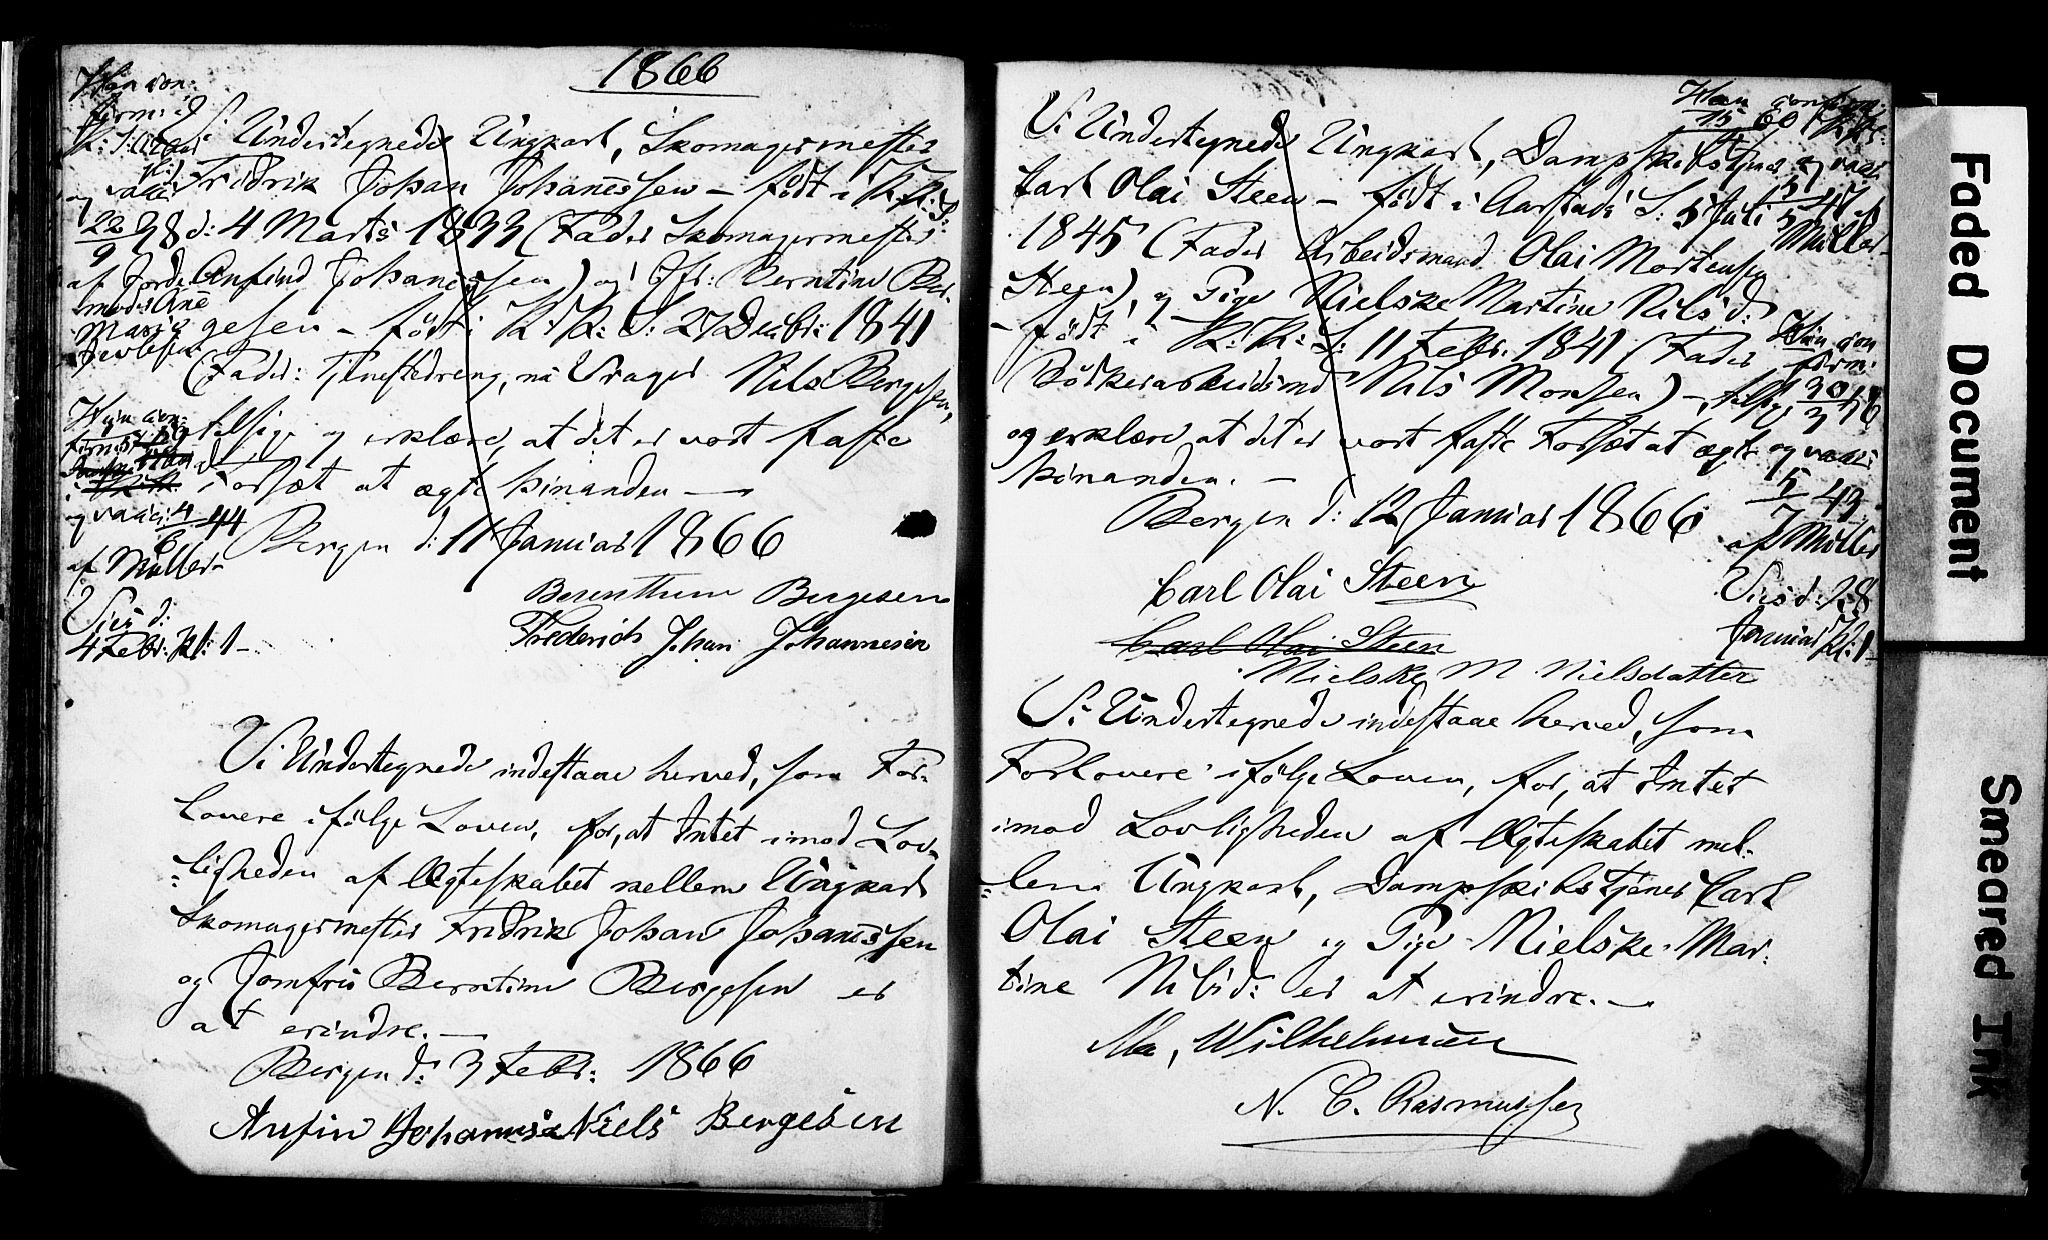 1866
Vi Undertegnede Ungkarl, Skomagermester
Fredrik Johan Johanessen – født i K.K.S.
d: 4 Marts 1833 (Fader Skomagermester
Anfind Johanessen) og Jfr: Berntine Ber-
gesen – født i K: K: S: 27 Decbr: 1841
(Fader: Tjenestedreng, nu Vrager Nils Bergesen,
tilsige og erklære, at det er vort faste
Forsæt at ægte hinanden —
Bergen d: 11 Januar 1866
Berenthine Bergesen
Frederich Johan Johannesen
Han con-
firm: i
og vacc:
22/9 38
af Jorde-
moder Ane
Maria
Hun con-
firm:
og vacc: 4/6 44
af Müller-
Viet d:
4 Febr: kl: 1 –
Vi Undertegnede indestaae herved, som For-
lovere ifølge Loven, for, at Intet imod Lov-
ligheden af Ægteskabet mellem Ungkarl
Skomagermester Fredrik Johan Johanessen
og Jomfru Berntine Bergesen er
at erindre. —
Bergen d: 3 Febr: 1866
Anfin Johannesen Niels Bergesen
Vi Undertegnede Ungkarl, Dampskibstjener
Carl Olai Steen – født i Aarstads S: 5 Juli
1845 (Fader Arbeidsmand Olai Mortensen
Steen), og Pige Nielske Martine Nilsd:
– født i K: K: S: 11 Febr. 1841 (Fader
Bødkerarbeidsmd Nils Monsen) –, tilsige
og erklære at det er vort faste Forsæt at ægte
hinanden. —
Bergen d: 12 Januar 1866
Carl Olai Steen
Carl Olai Steen
Nielske M Nielsdatter
Han confirm:
og vacc:
Müller-
Hun con
firm:
og vacc:
5 43
af Müller
Viet d: 28
Januar kl: 1 –
Vi Undertegnede indestaae herved, som
Forlovere ifølge Loven, for, at Intet
imod Lovligheden af Ægteskabet mel-
lem Ungkarl, Dampskibstjener Carl
Olai Steen og Pige Nielske Mar-
tine Nilsd: er at erindre. —
N. C. Rasmussen
Faded Document
Smeared Ink